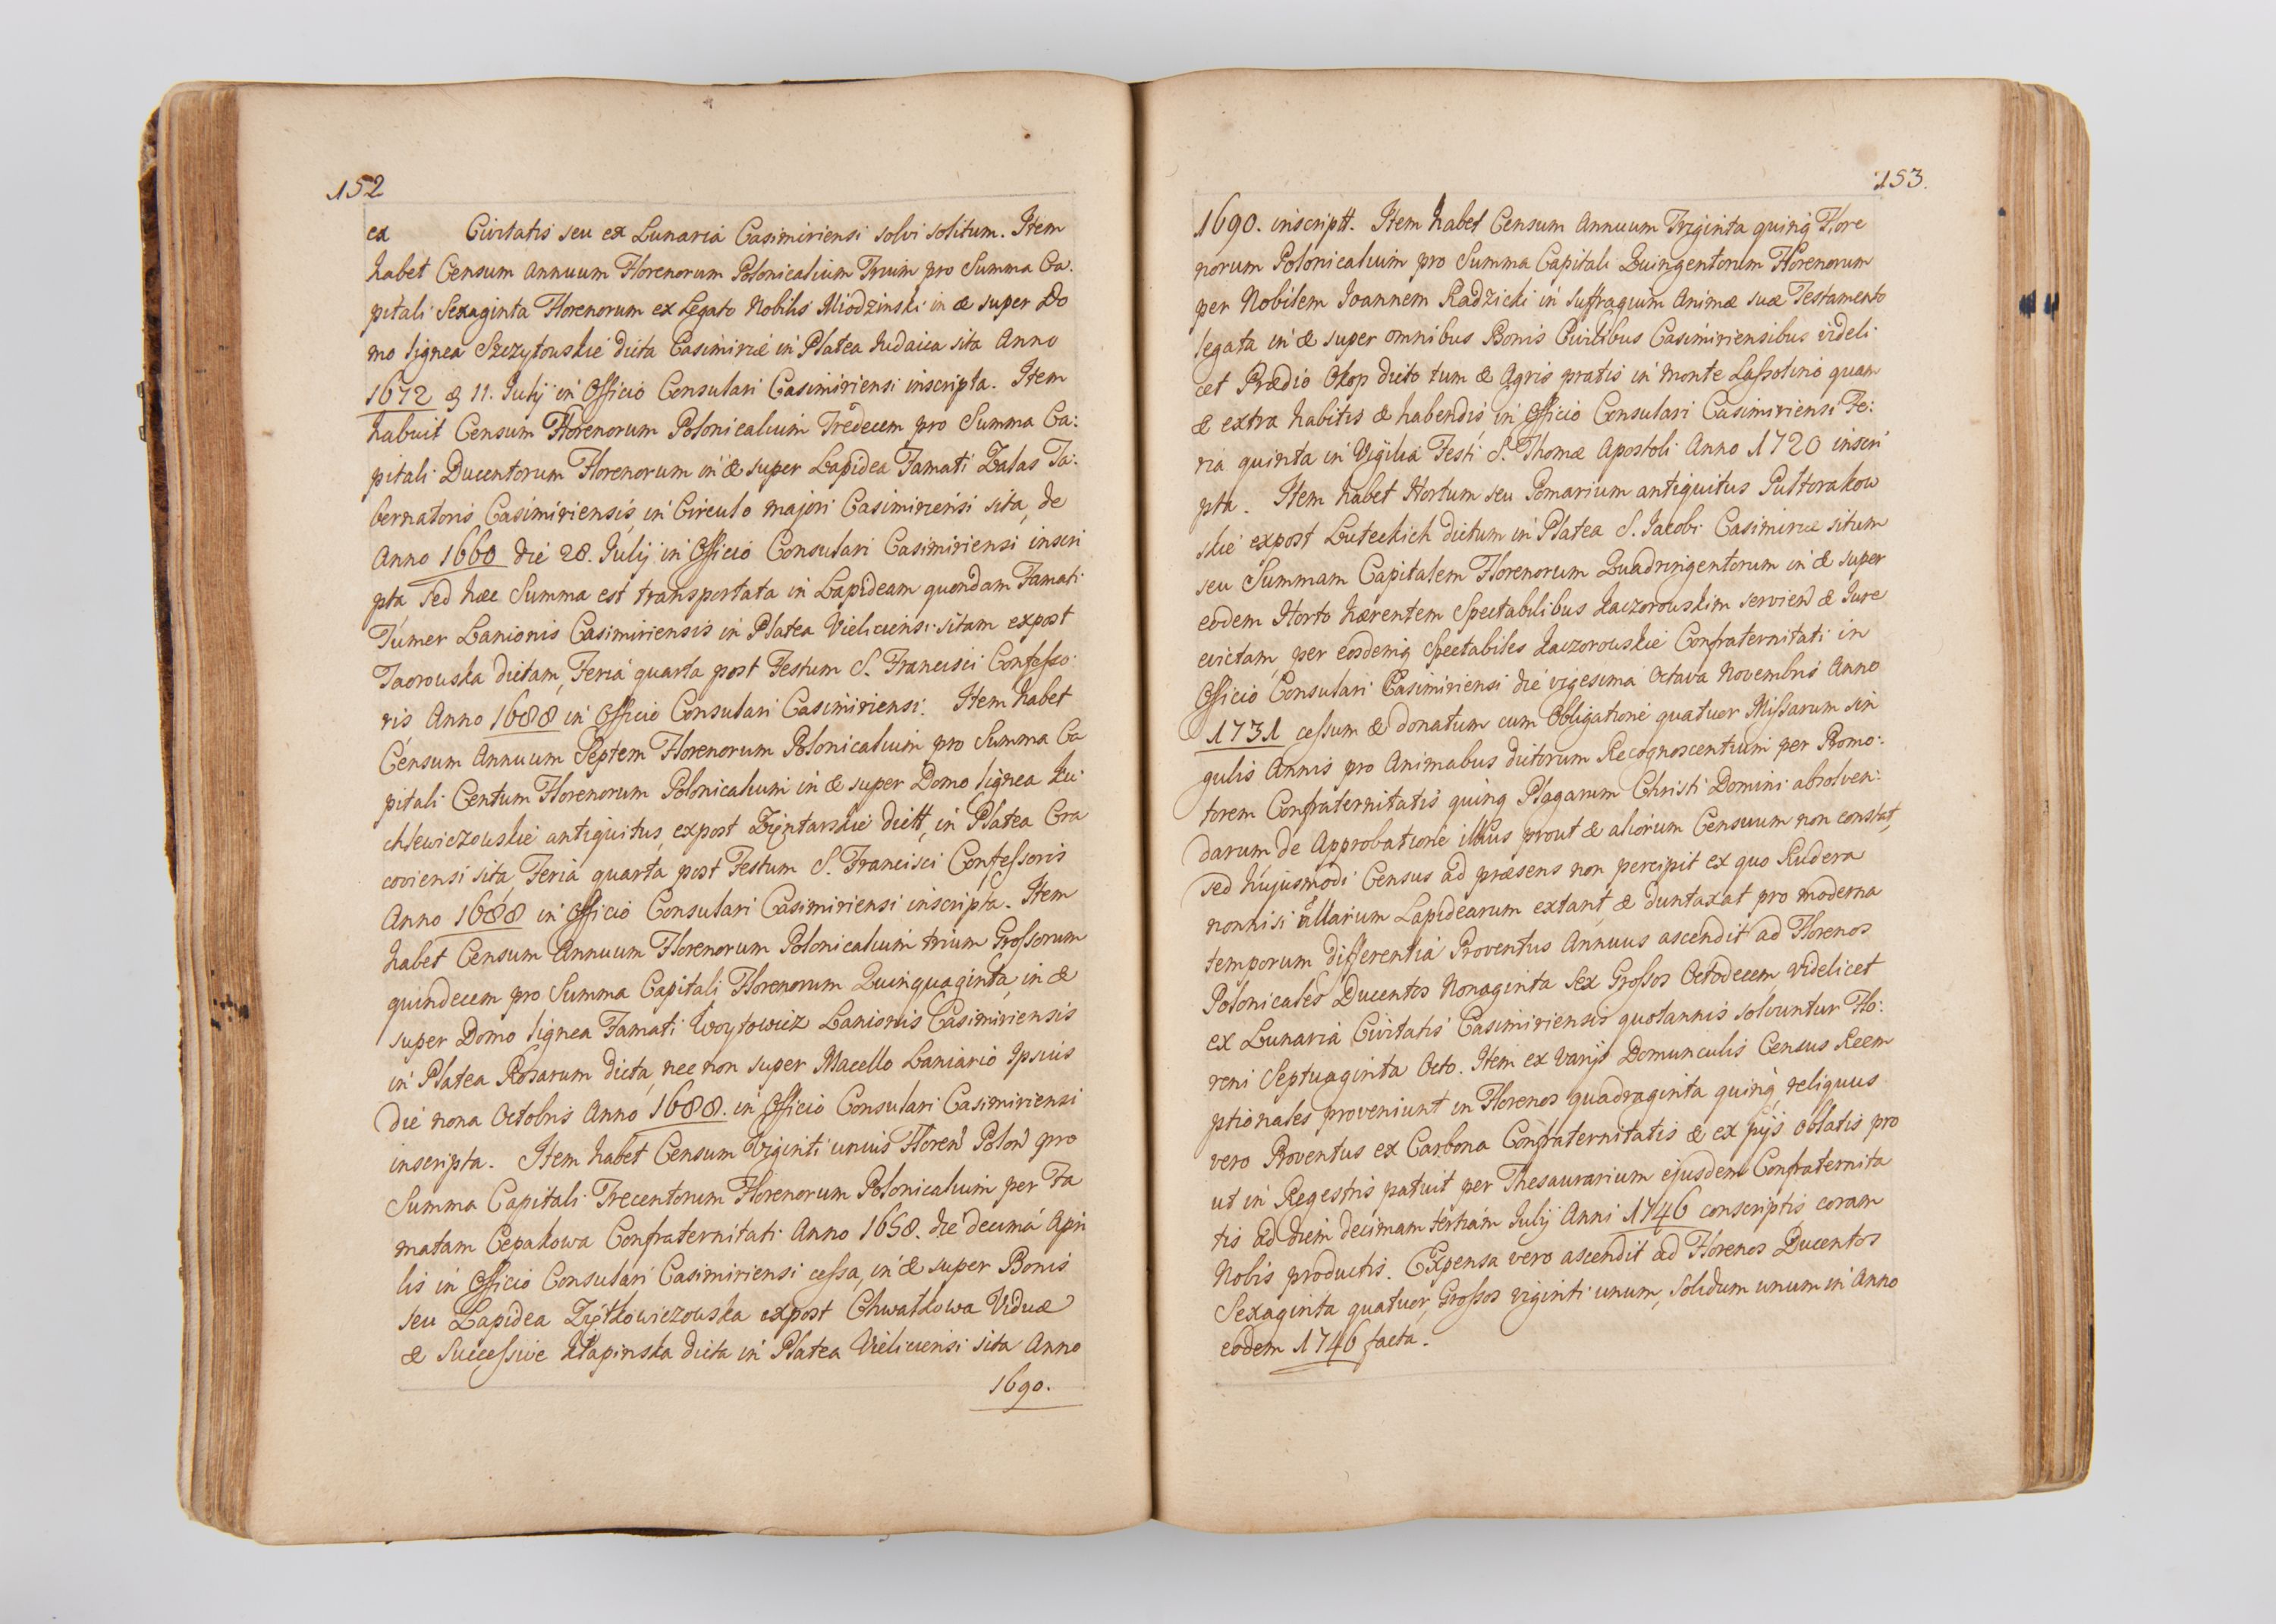 152
ex Civitatis seu ex Lunaria Casimiriensi solvi solitum. Item
habet Censum Annuum Florenorum Polonicalium Trium pro Summa Ca:
pitali Sexaginta Florenorum ex Legato Nobilis Miodzinski in & super Do
mo lignea Szczytouskie dicta Casimiriæ in Platea Iudaica sita Anno
1672 & 11. Iulij in Officio Consulari Casimiriensi inscripta. Item
habuit Censum Florenorum Polonicalium Tredecem pro Summa Ca:
pitali Ducentorum Florenorum in & super Lapidea Famati Zalas Ta:
bernatoris Casimiriensis in Circulo majori Casimiriensi sita, de
Anno 1660 die 28. Iulij in Officio Consulari Casimiriensi inscri
pta, sed hæc Summa est transportata in Lapideam quondam Famati
Tumer Lanionis Casimiriensis in Platea Vieliciensi sitam expost
Taorouska dictam, Feria quarta post Festum S. Francisci Confesso:
ris Anno 1688 in Officio Consulari Casimiriensi. Item habet
Censum Annuum Septem Florenorum Polonicalium pro Summa Ca
pitali Centum Florenorum Polonicalium in & super Domo lignea Ku
chlewiczouskie antiquitus, expost Zyntarskie dictt, in Platea Cra
coviensi sita, Feria quarta, post Festum S. Francisci Confessoris
Anno 1688 in Officio Consulari Casimiriensi inscripta. Item
habet Censum Annuum Florenorum Polonicalium trium Grossorum
quindecem pro Summa Capitali Florenorum Quinquaginta, in &
super Domo lignea Famati Woytowicz Lanionis Casimiriensis
in Platea Rosarum dicta, nec non super Macello Laniario Ipsius
die nona Octobris Anno 1688. in Officio Consulari Casimiriensi
inscripta. Item habet Censum Viginti unius Floren Polon pro
Summa Capitali Trecentorum Florenorum Polonicalium per Fa
matam Cepakowa Confraternitati Anno 1658. die decima Apri
lis in Officio Consulari Casimiriensi cessa, in & super Bonis
seu Lapidea Zytkowiczouska expost Chwatkowa Viduæ
& Successive Kłapinska dicta in Platea Vieliciensi sita Anno
1690.
153.
1690. inscriptt. Item habet Censum Annuum Triginta quinq Flore
norum Polonicalium pro Summa Capitali Quingentorum Florenorum
per Nobilem Ioannem Radzicki in suffragium Animæ suæ Testamento
legata in & super omnibus Bonis Civilibus Casimiriensibus videli
cet Prædio Okop dicto tum & Agris pratis in monte Lassotino quam
& extra habitis & habendis in Officio Consulari Casimiriensi Fe:
ria quinta in Vigilia Festi S. Thomæ Apostoli Anno 1720 inscri
pta. Item habet Hortum seu Pomarium antiquitus Pułtorakow
skie expost Luteckich dictum in Platea S. Iacobi Casimiriæ situm
seu Summam Capitalem Florenorum Quadringentorum in & super
eodem Horto hærentem Spectabilibus Kaczorouskim servien & Iure
evictam, per eosdemq Spectabiles Kaczorouskie Confraternitati in
Officio Consulari Casimiriensi die vigesima Octava Novembris Anno
1731 cessum & donatum cum Obligatione quatuor Missarum sin
gulis Annis pro Animabus dictorum Recognoscentium per Promo:
torem Confraternitatis quinq Plagarum Christi Domini absolven:
darum de Approbatione illius prout & aliorum Censuum non constat,
sed hujusmodi Census ad præsens non percipit ex quo Rudera
nonnisi illarum Lapidearum extant, & duntaxat pro moderna
temporum differentia Proventus Annuus ascendit ad Florenos
Polonicales Ducentos Nonaginta Sex Grossos Octodecem, videlicet
ex Lunaria Civitatis Casimiriensis quotannis solvuntur Flo:
reni Septuaginta Octo. Item ex Varijs Domunculis Census Reem
ptionales proveniunt in Florenos quadraginta quinq, reliquus
vero Proventus ex Carbona Confraternitatis & ex pijs Oblatis pro
ut in Regestris patuit per Thesaurarium ejusdem Confraternita
tis ad diem decimam tertiam Iulij Anni 1746 conscriptis coram
Nobis productis. Expensa vero ascendit ad Florenos Ducentos
Sexaginta quatuor, Grossos viginti unum, Solidum unum in Anno
eodem 1746 facta.